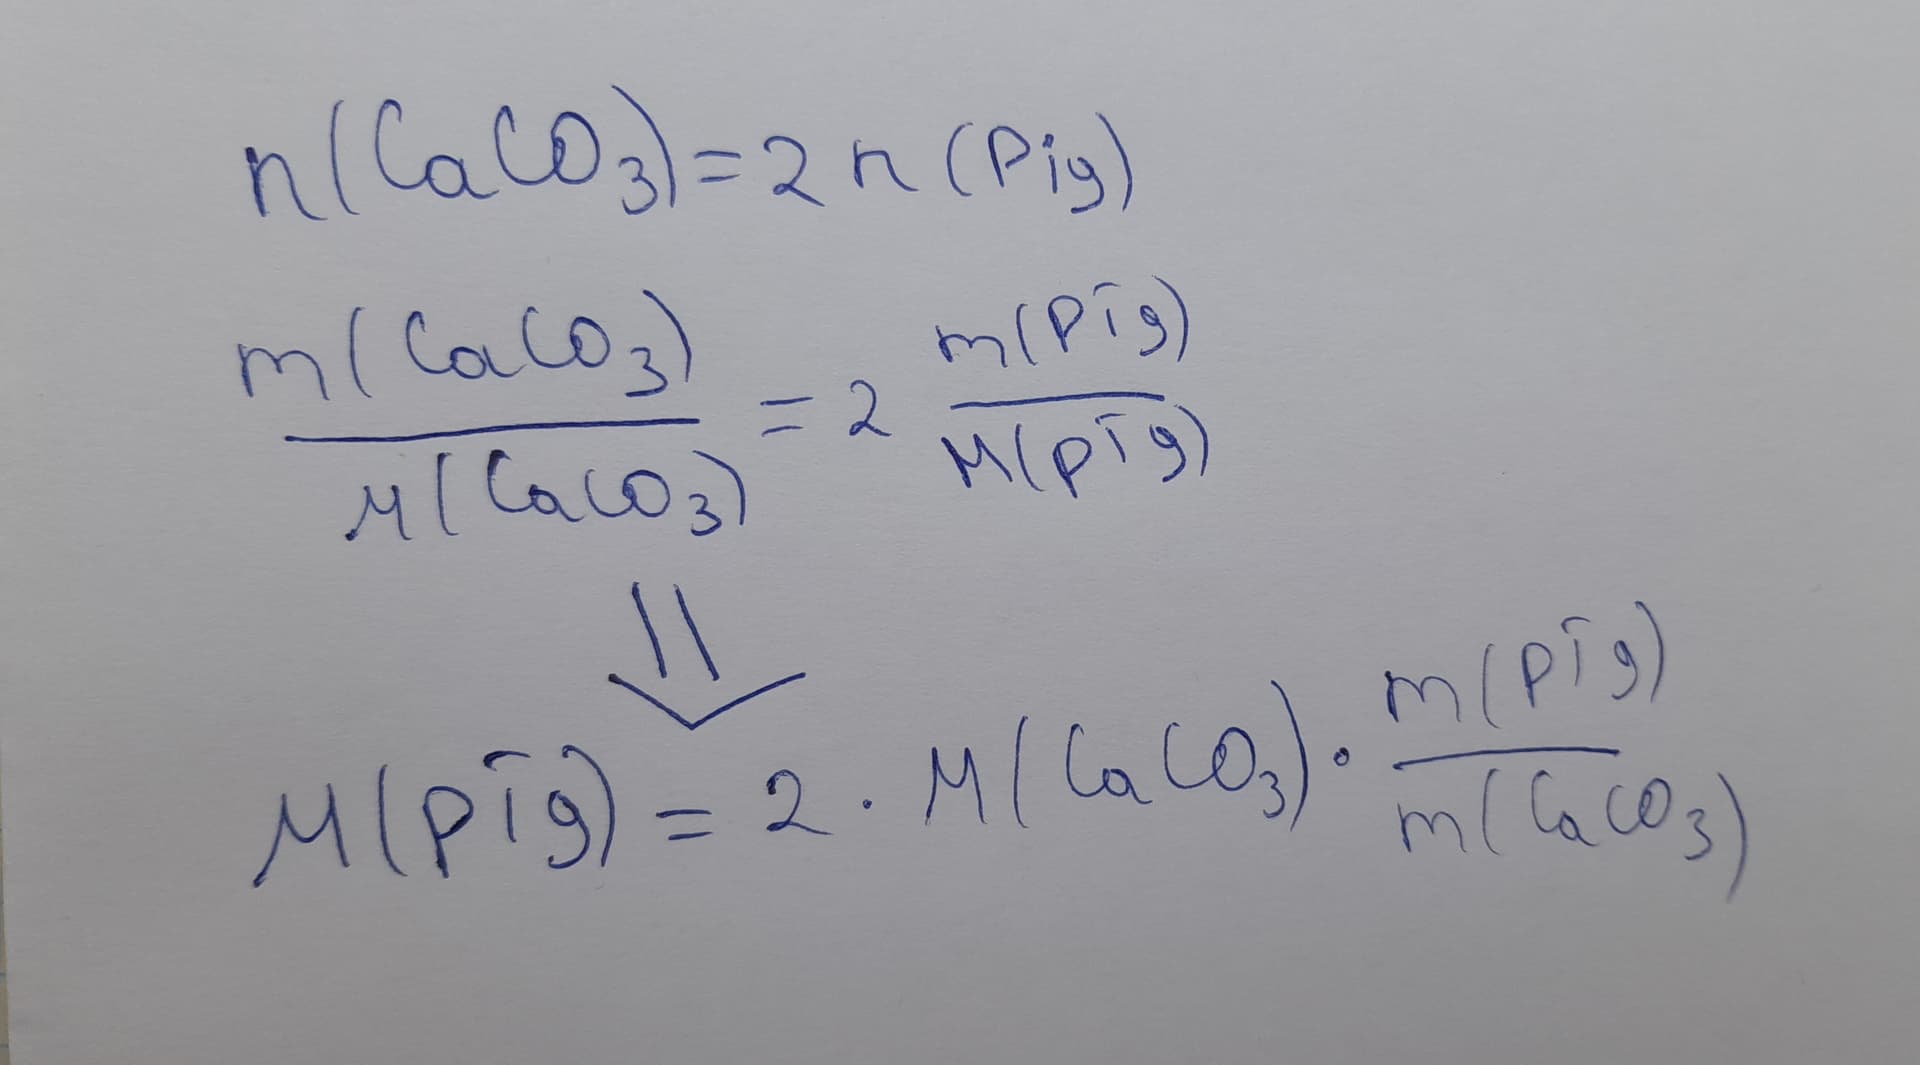 n(CaCO₃) = 2 n (Pig)
m(CaCO₃) / M(CaCO₃) = 2 m(Pig) / M(Pig)
⇓
M(Pig) = 2 · M(CaCO₃) · m(Pig) / m(CaCO₃)